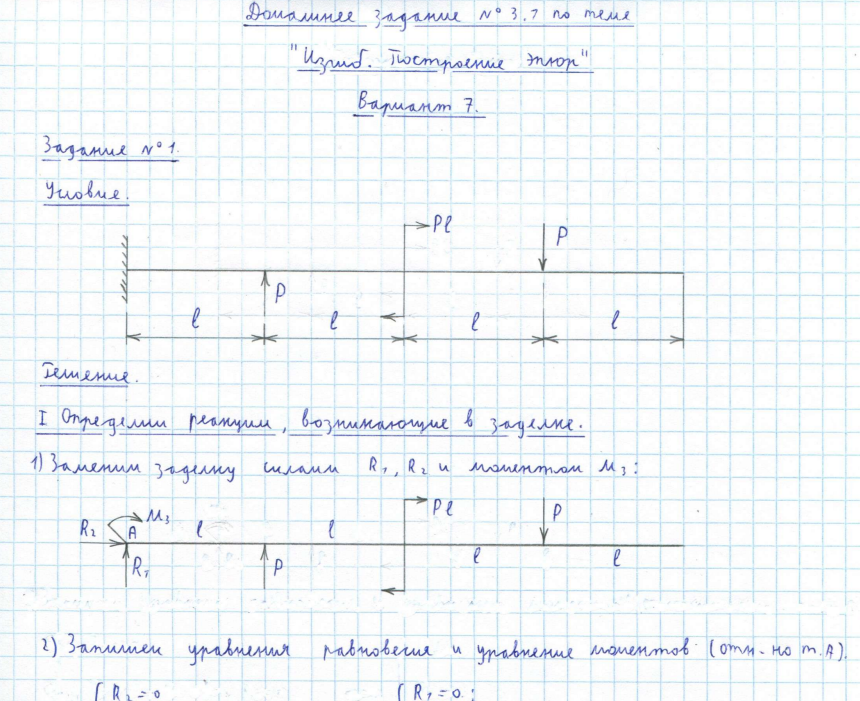 Домашнее задание №3.7 по теме
"Изгиб. Построение эпюр"
Вариант 7.
Задание №1.
Условие.
Pl
P
P
l l l l
Решение.
I Определим реакции, возникающие в заделке.
1) Заменим заделку силами R₁, R₂ и моментом M₃:
M₃ Pl P
R₂ A l l
l l
R₁ P
2) Запишем уравнения равновесия и уравнение моментов (отн-но т.А).
{ R₂ = 0 { R₁ = 0;